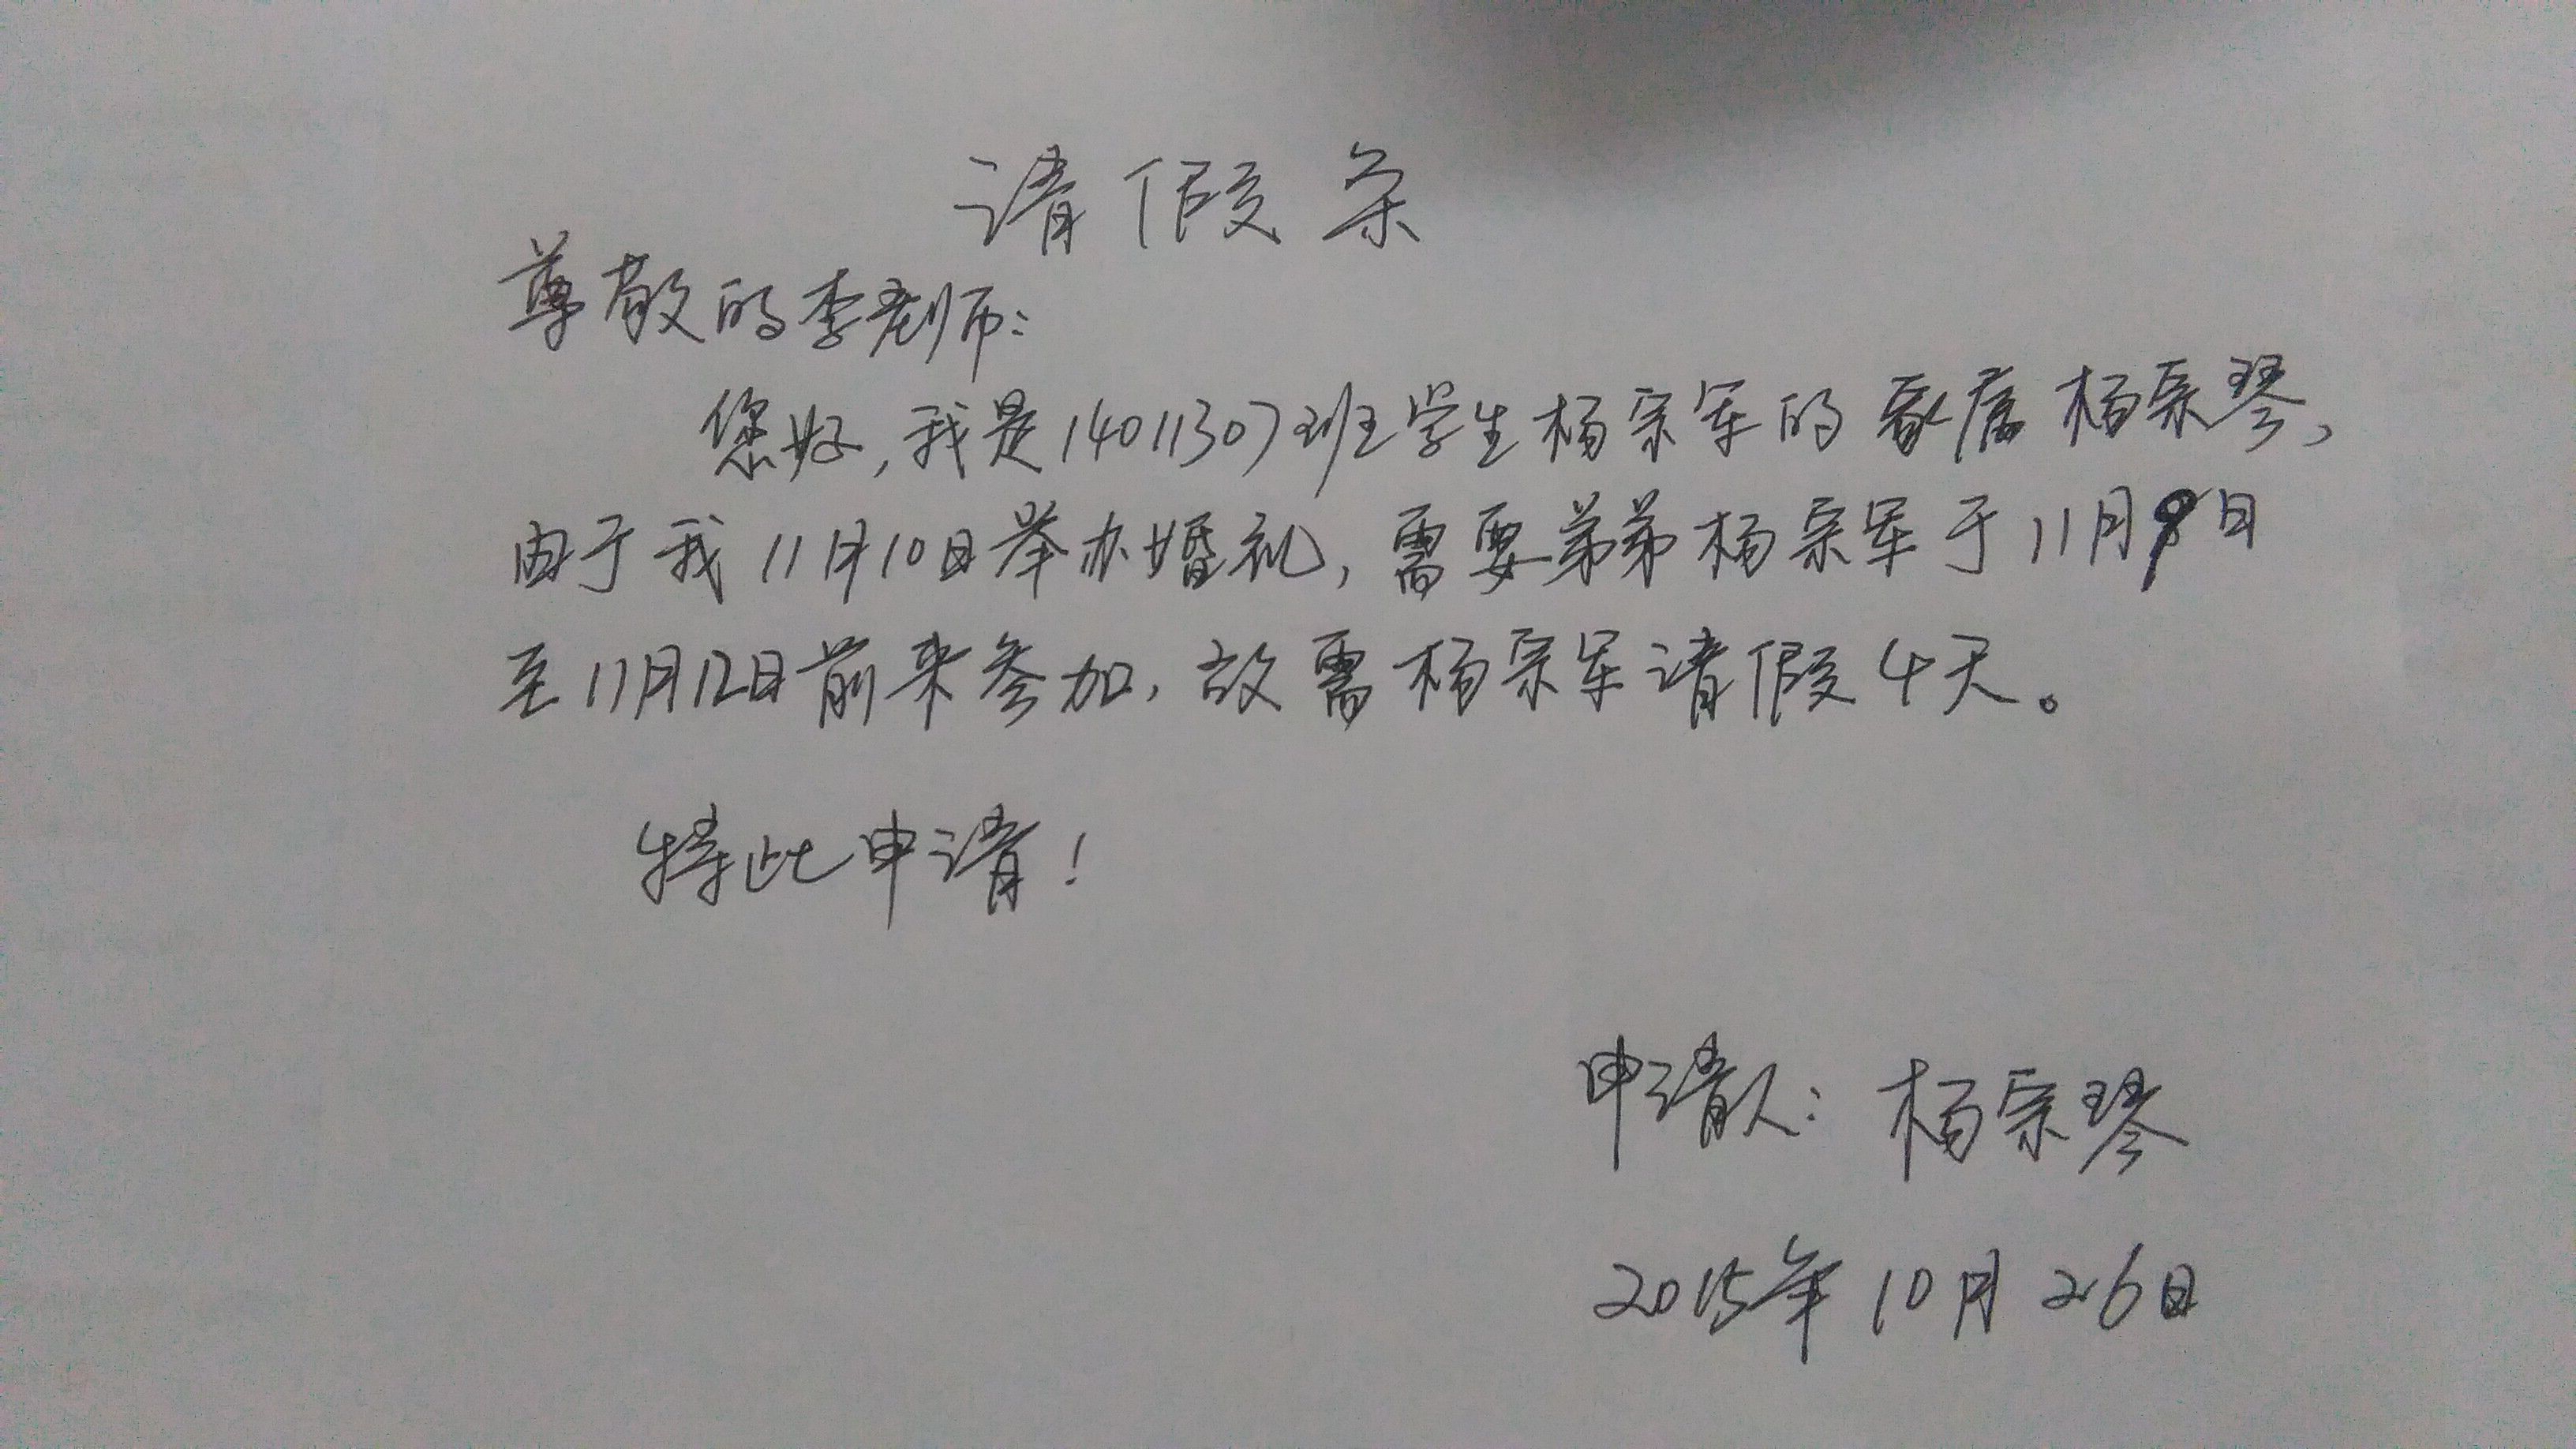 请假条
尊敬的李老师：
您好，我是14011307班学生杨宗军的家属杨宗琴，
由于我11月10日举办婚礼，需要弟弟杨宗军于11月9日
至11月12日前来参加，故需杨宗军请假4天。
特此申请！
申请人：杨宗琴
2015年10月26日